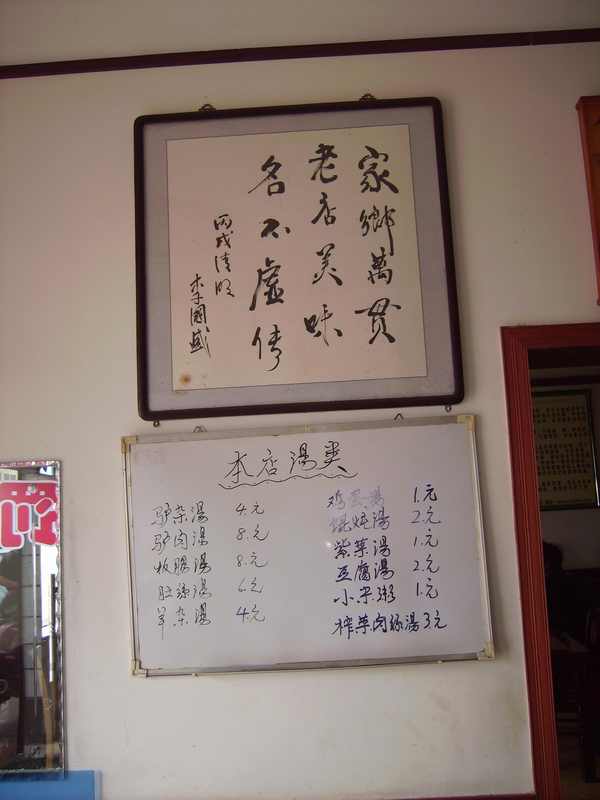 家鄉萬贯
老店美味
名不虚传
丙戌清明
李國盛
本店湯类
驴杂湯 4.元
驴肉湯 8.元
板腸湯 8.元
肚絲湯 6.元
羊杂湯 4.元
鸡蛋湯 1.元
馄炖湯 2.元
紫菜湯 1.元
豆腐湯 2.元
小米粥 1.元
榨菜肉絲湯 3.元